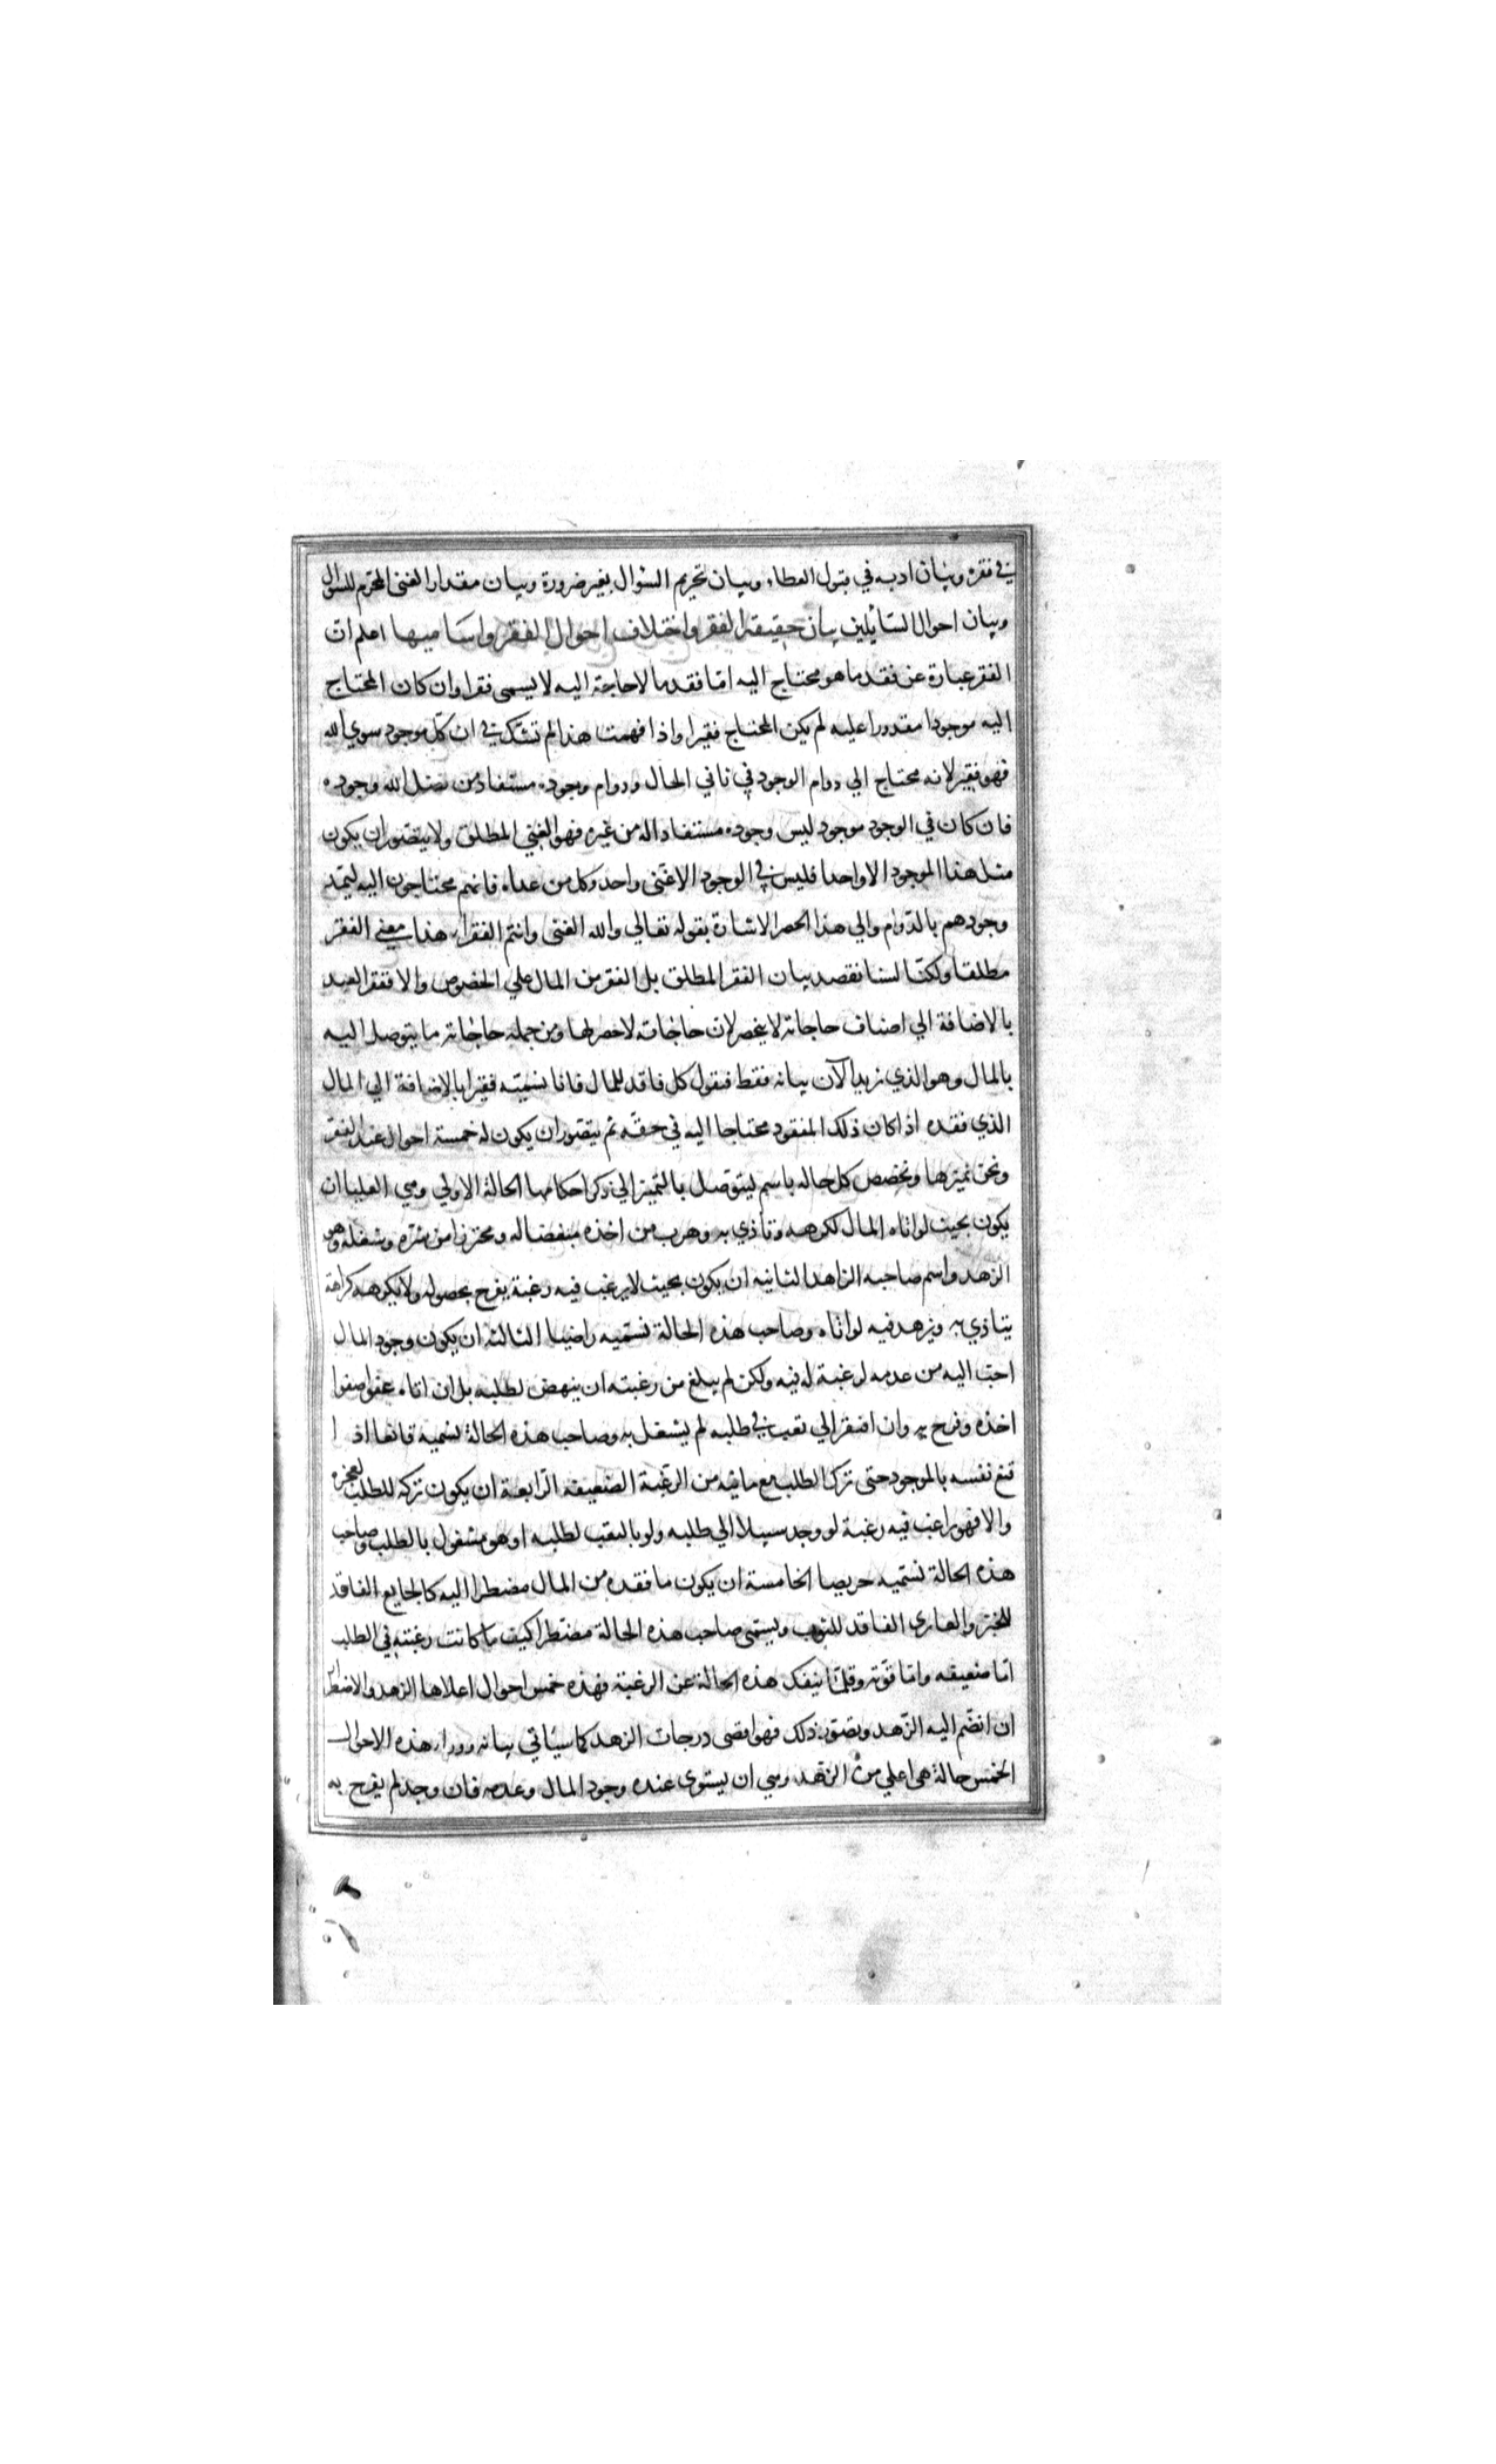 في فقره وبيان ادبه في قبول العطاء وبيان تحريم السؤال بغير ضرورة وبيان مقدار الغنى المحرم للسؤال
وبيان احوال السائلين بيان حقيقة الفقر واختلاف احوال الفقر واساميها اعلم ان
الفقر عبارة عن فقد ما هو محتاج اليه امّا فقد ما لا حاجة اليه لا يسمى فقرا وان كان المحتاج
اليه موجودا مقدورا عليه لم يكن المحتاج فقيرا واذا فهمت هذا لم تشك في ان كل موجود سوي الله
فهو فقير لانه محتاج الي دوام الوجود في ثاني الحال ودوام وجوده مستفاد من فضل الله وجوده
فان كان في الوجود موجود ليس وجوده مستفادا له من غيره فهو الغني المطلق ولا يتصّور ان يكون
مثل هذا الموجود الا واحدا فليس في الوجود الا غنى واحد وكل من عداه فانهم محتاجون اليه ليمد
وجودهم بالدّوام والي هذا الحصر الاشارة بقوله تعالي والله الغنى وانتم الفقراء هذا معنى الفقر
مطلقا ولكنّا لسنا نقصد بيان الفقر المطلق بل الفقر من المال علي الخصوص والا ففقر العبد
بالاضافة الي اصناف حاجاته لا ينحصر لان حاجاته لا حصر لها ومن جمله حاجاته ما يتوصل اليه
بالمال وهو الذي نريد الآن بيانه فقط فنقول كل فاقد للمال فانا نسمّيه فقيرا بالاضافة الي المال
الذي فقده اذا كان ذلك المفقود محتاجا اليه في حقّه ثم يتصّور ان يكون له خمسة احوال عند الفقر
ونحن نميّزها ونخصص كل حاله باسم ليتوصل بالتميز الي ذكر احكامها الحالة الاولي وهي العليا ان
يكون بحيث لو اتاه المال لكرهه وتاذي به وهرب من اخذه مبغضا له ومحترزا من شره وشغله وهو
الزهد واسم صاحبه الزاهد الثانيه ان يكون بحيث لا يرغب فيه رغبة يفرح بحصوله ولا يكرهه كراهة
يتاذي به ويزهد فيه لو اتاه وصاحب هذه الحالة نسمّيه راضيا الثالثه ان يكون وجود المال
احبّ اليه من عدمه لرغبة له فيه ولكن لم يبلغ من رغبته ان ينهض لطلبه بل ان اتاه عفوا صفوا
اخذه وفرح به وان افتقر الي تعب في طلبه لم يشغل به وصاحب هذه الحالة نسّميه قانعا اذ ا
قنع نفسه بالموجود حتى ترك الطلب مع ما فيه من الرغبة الضعيفه الرّابعة ان يكون تركه للطلب لعجزه
والا فهو راغب فيه رغبة لو وجد سبيلا الي طلبه ولو بالتعب لطلبه او هو مشغول بالطلب وصاحب
هذه الحالة نسّميه حريصا الخامسة ان يكون ما فقده من المال مضطرا اليه كالجايع الفاقد
للخبز والعارى الفاقد للثوب ويسّمى صاحب هذه الحالة مضطرا كيف ما كانت رغبته في الطلب
امّا ضعيفه وامّا قوّته وقلمّا ينفك هذه الحالة عن الرغبة فهذه خمس احوال اعلاها الزهد والاضطرار
ان انضّم اليه الزّهد وتصوّر ذلك فهو اقصى درجات الزهد كما سئاتي بيانه وورا هذه الاحوال
الخمس حالة هى اعلي من الزّهد وهي ان يستوى عنده وجود المال وعدمه فان وجد لم يفرح به